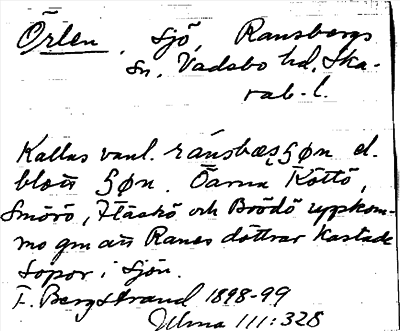 Örlen, Sjö, Ransbergs
Sn, Vadsbo hd, Ska-
rab. l.
Kallas vanl. ränsbæs ʂøn el.
blott ʂøn. Öarna Köttö,
Smörö, Fläskö och Brödö uppkom-
mo gm att Ranes döttrar kastade
sopor i sjön.
F. Bergstrand 1898-99
Ulma 111:328